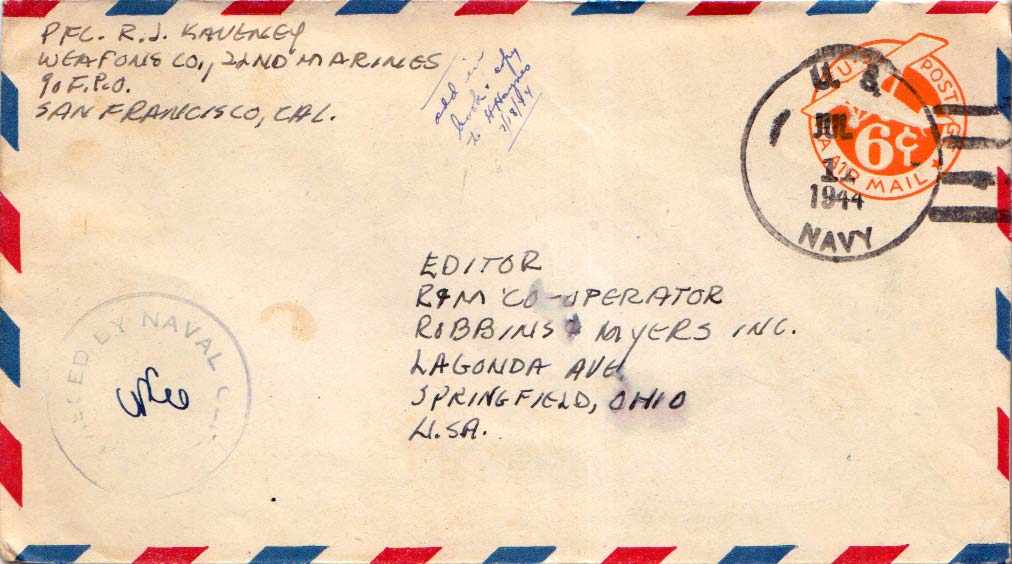 PFC. R.J. KAVENEY
WEAPONS CO., 22ND MARINES
℅ F.P.O.
SAN FRANCISCO, CAL.
add in
book & copy
to H Haynes
7/18/44
U.S. POSTAGE
6¢
VIA AIR MAIL
U. S.
JUL
1944
NAVY
EDITOR
R&M CO-OPERATOR
ROBBINS & MYERS INC.
LAGONDA AVE
SPRINGFIELD, OHIO
U.S.A.
BY NAVAL